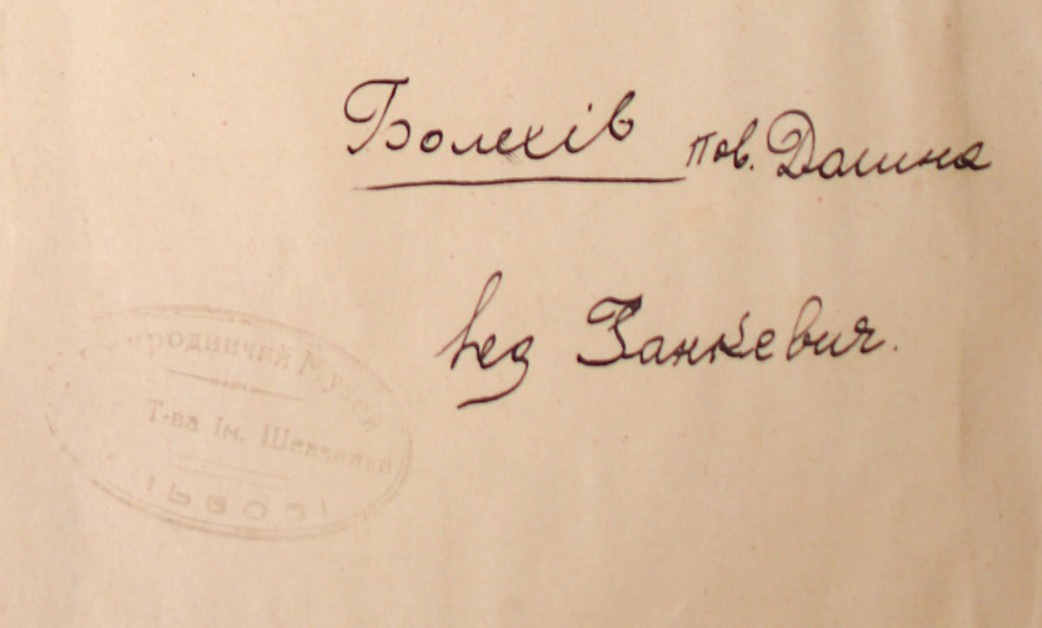 Болехів пов. Долина
лед Занкевич.
Природничий Музей
Т-ва Ім. Шевченка
Львові